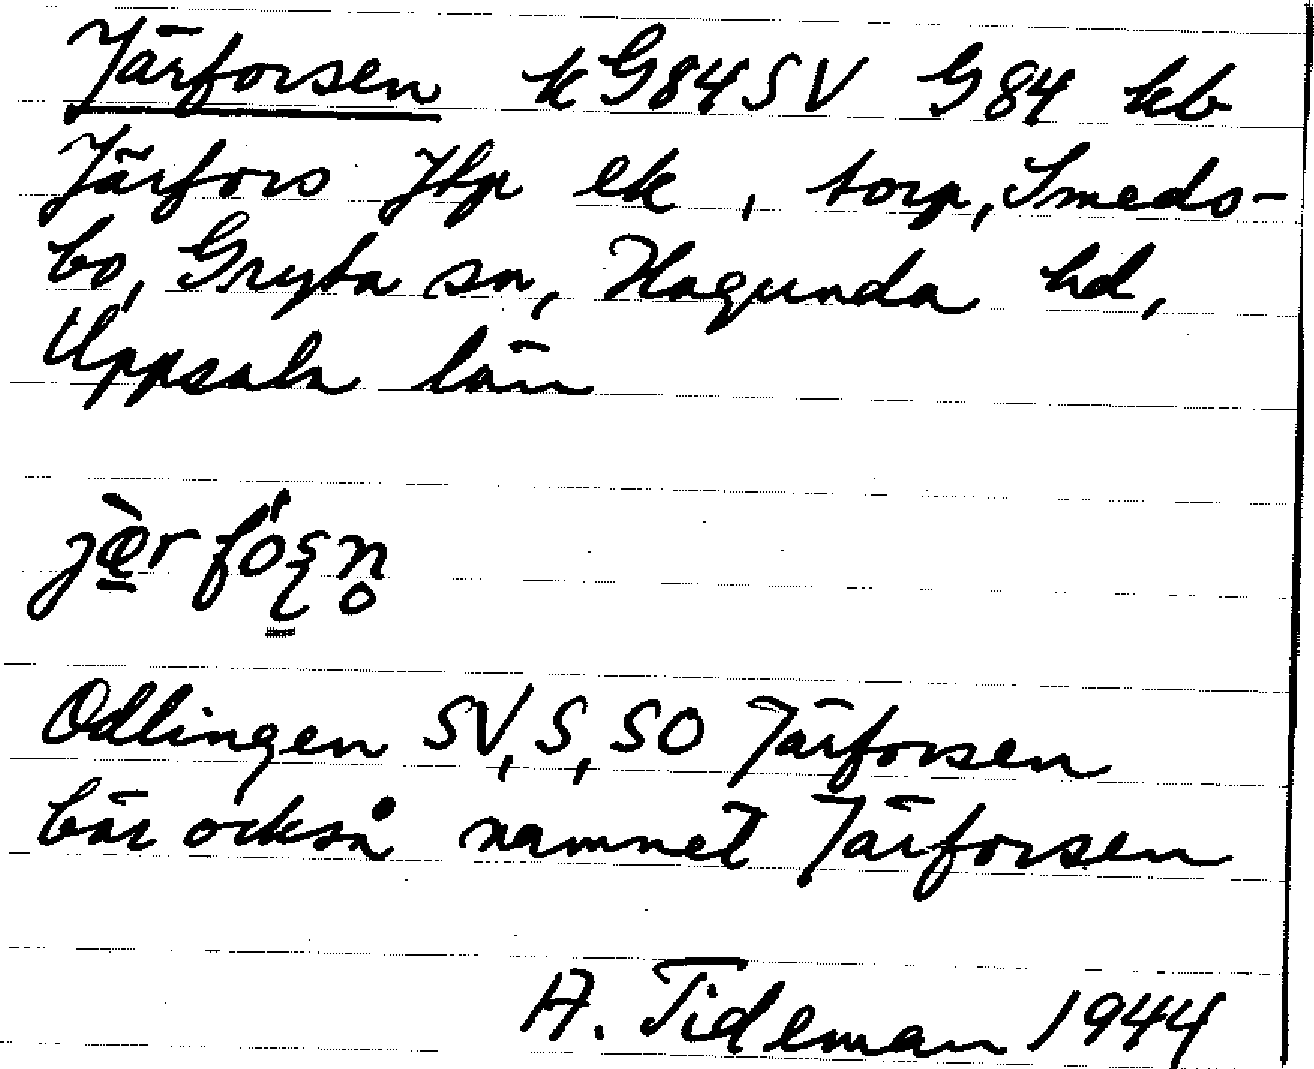 Järforsen kG84SV G84 kb
Järfors Jfp ek, torp, Smeds-
bo, Gryta sn, Hagunda hd,
Uppsala län
Odlingen SV, S, SO Järforsen
bär också namnet Järforsen
A. Tideman 1944